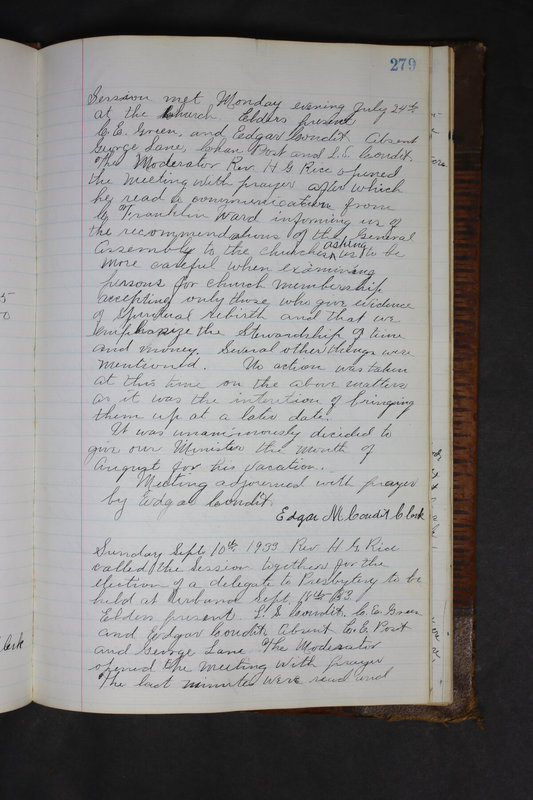 279
Session met Monday evening July 24th
at the church. Elders present
C. E. Green, and Edgar Condit. Absent
George Lane, Chas. Post and L. S. Condit.
The Moderator Rev. H G Rice opened
the meeting with prayer after which
he read a communication from
Franklin Ward informing us of
the recommendations of the General
Assembly to the churches asking us to be
more careful when examining
persons for church membership
accepting only those who give evidence
of Spiritual rebirth and that we
emphasize the Stewardship of time
and money. Several other things were
mentioned. No action was taken
at this time on the above matters
as it was the intention of bringing
them up at a later date.
It was unanimously decided to
give our Minister the month of
August for his vacation.
Meeting adjourned with prayer
by Edgar Condit.
Edgar M Condit Clerk
Sunday Sept. 10th 1933 Rev H G Rice
called the Session together for the
election of a delegate to Presbytery to be
held at Urbana Sept.
Elders present. L. S Condit. C. E. Green
and Edgar Condit. Absent C. E. Post
and George Lane. The Moderator
opened the meeting with prayer
The last minutes were read and